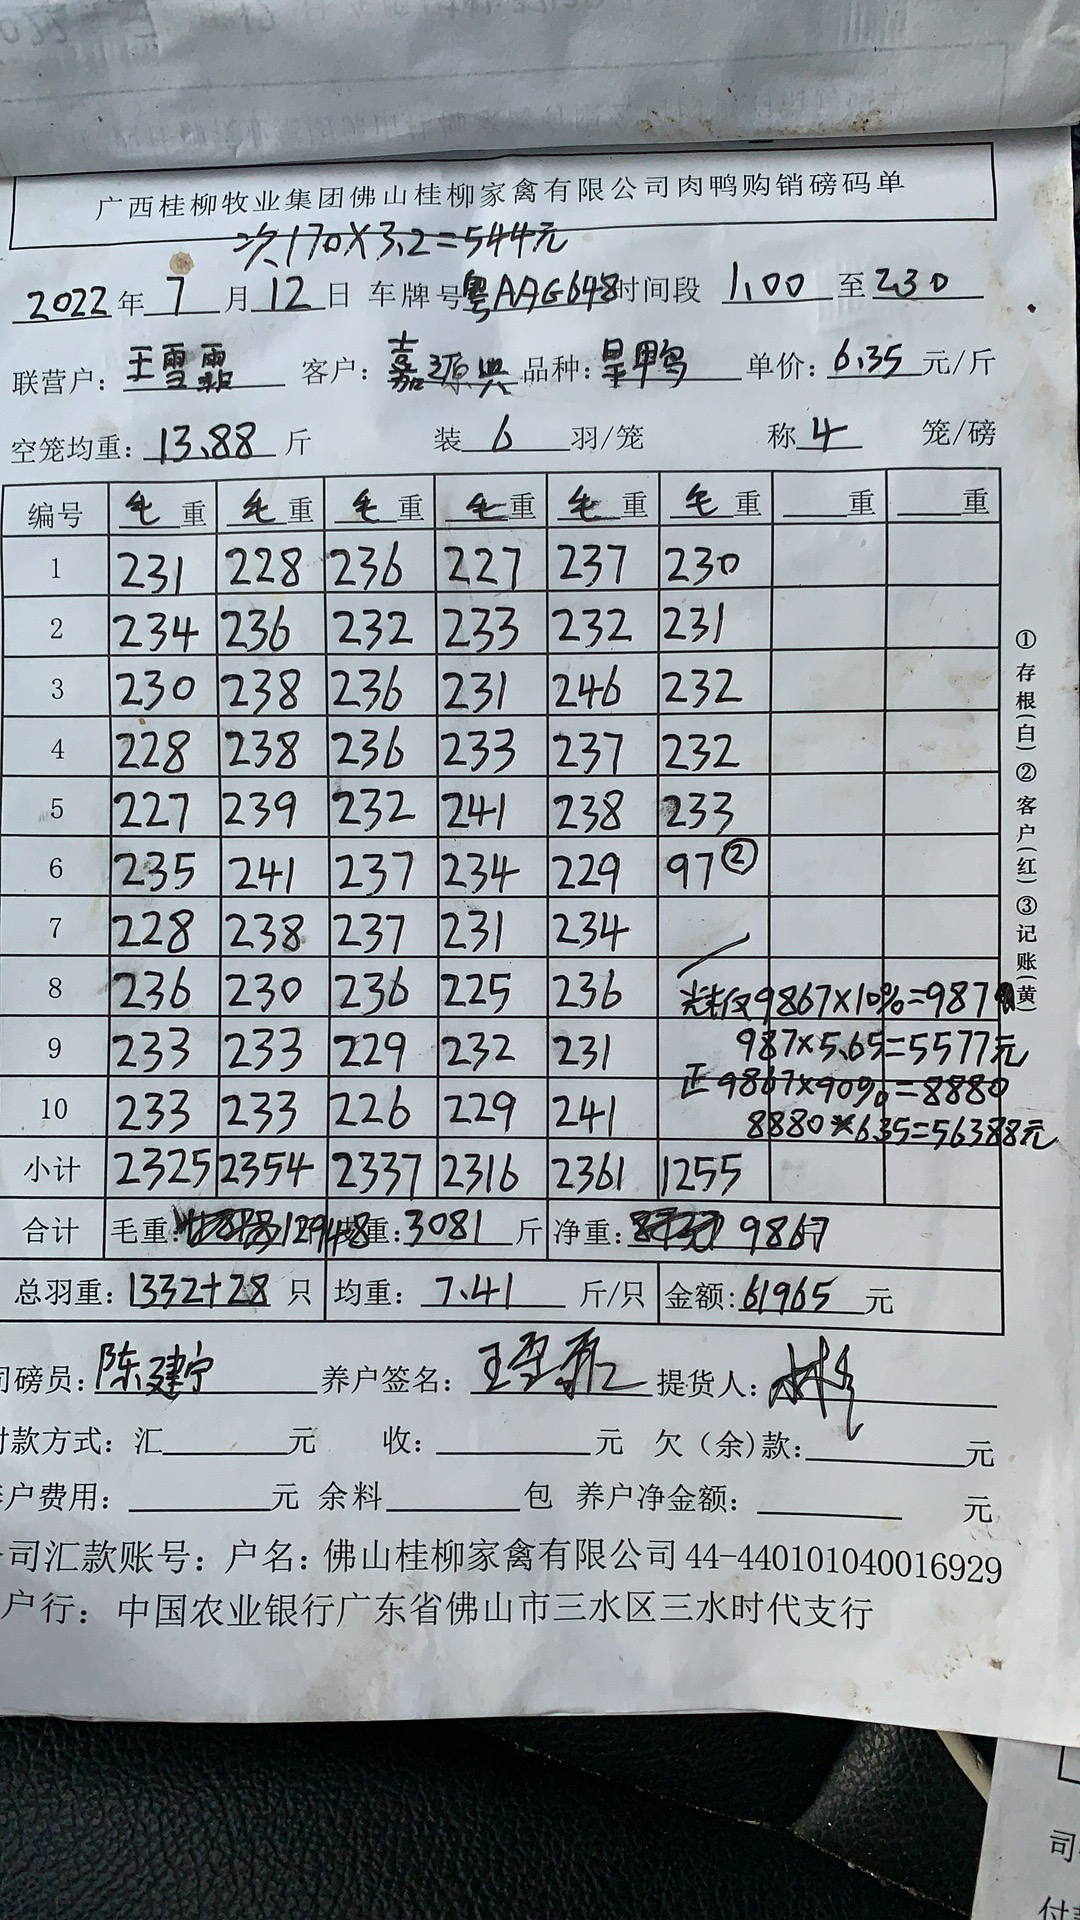 广西桂柳牧业集团佛山桂柳家禽有限公司肉鸭购销磅码单
次170×3.2=544元
2022年7月12日 车牌号粤AAG648时间段 1.00 至 2.30
联营户: 王雪霏 客户: 嘉源兴 品种: 旱鸭 单价: 6.35 元/斤
空笼均重: 13.88 斤 装 6 羽/笼 称 4 笼/磅
编号 毛重 毛重 毛重 毛重 毛重 毛重 重 重
1 231 228 236 227 237 230
2 234 236 232 233 232 231
3 230 238 236 231 246 232
4 228 238 236 233 237 232
5 227 239 232 241 238 233
6 235 241 237 234 229 97②
7 228 238 237 231 234
8 236 230 236 225 236 9867×10%=987
9 233 233 229 232 231 987×5.65=5577元
正 9867×90%=8880
10 233 233 226 229 241 8880×6.35=56388元
小计 2325 2354 2337 2316 2361 1255
合计 毛重: 12948 重: 3081 斤 净重: 9867
总羽重: 1332+28 只 均重: 7.41 斤/只 金额: 61965 元
司磅员: 陈建宁 养户签名: 王雪霏 提货人:
付款方式: 汇 元 收: 元 欠(余)款: 元
户费用: 元 余料 包 养户净金额: 元
司汇款账号: 户名: 佛山桂柳家禽有限公司 44-440101040016929
户行: 中国农业银行广东省佛山市三水区三水时代支行
①存根(白)②客户(红)③记账(黄)
司
付